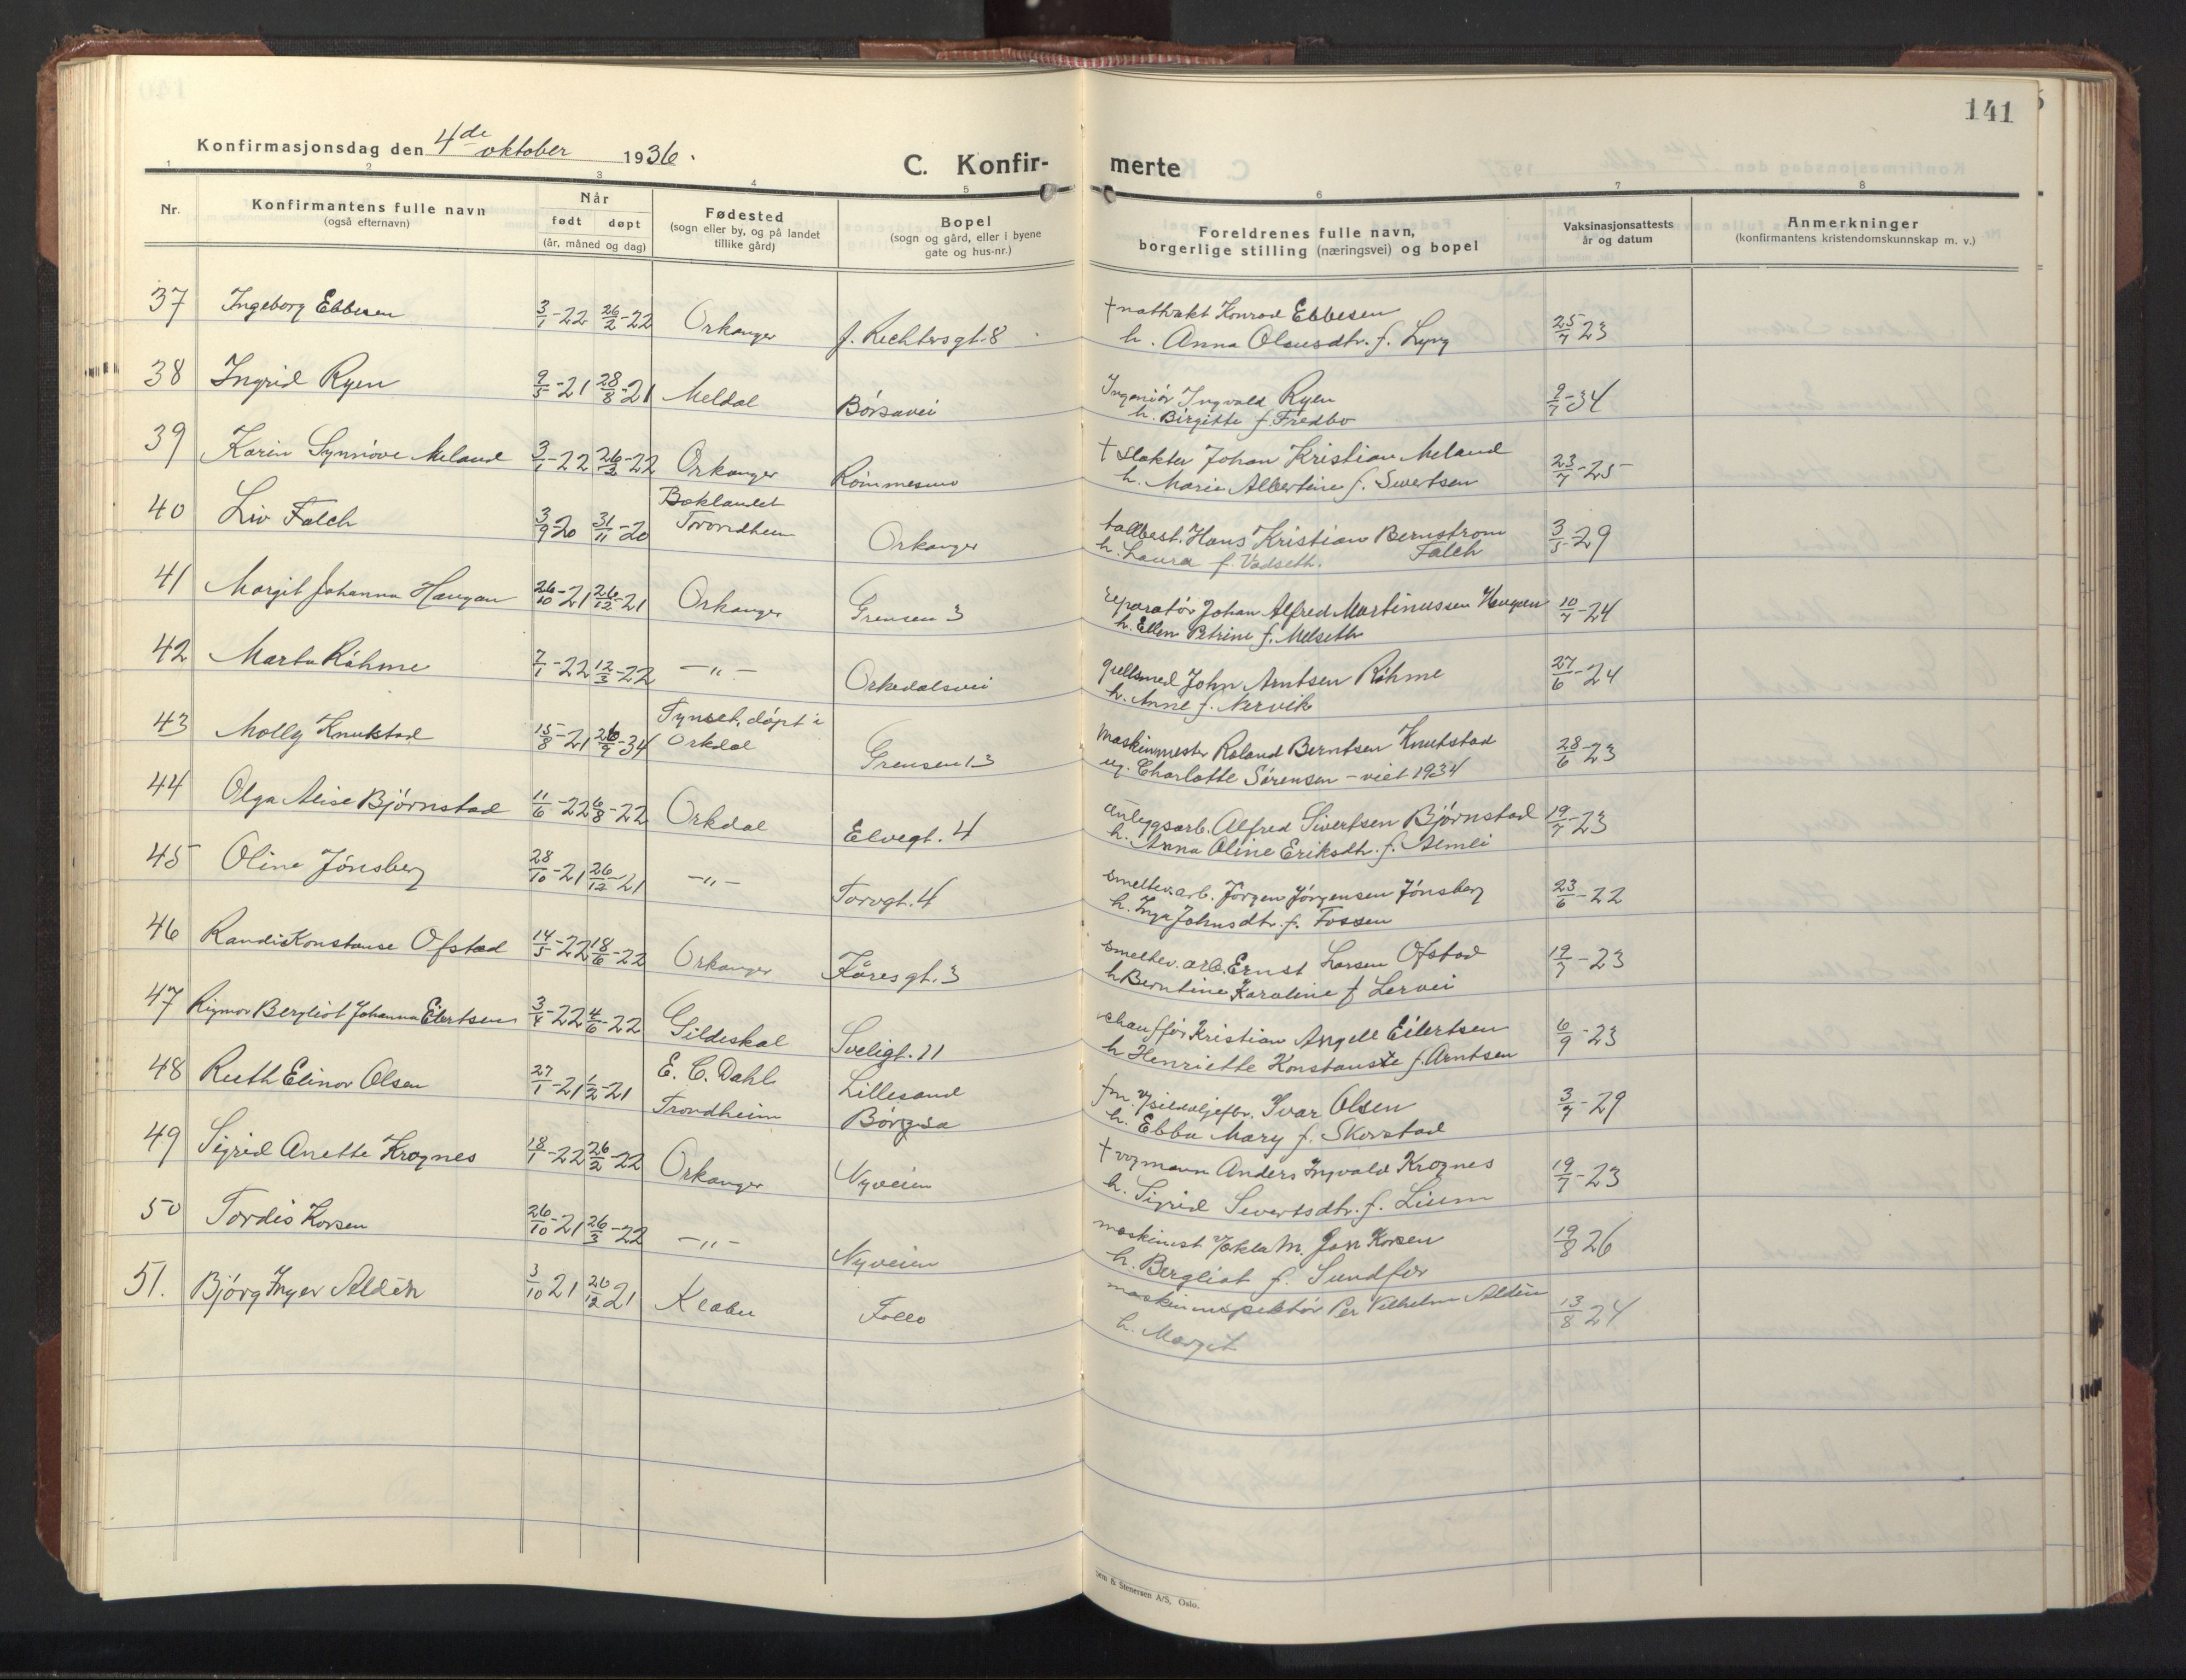 141
Konfirmasjonsdag den 4de oktober 1936.
C. Konfir- merte
1 2 3 4 5 6 7 8
Nr.
Konfirmantens fulle navn
(også efternavn)
Når
født døpt
(år, måned og dag)
Fødested
(sogn eller by, og på landet
tillike gård)
Bopel
(sogn og gård, eller i byene
gate og hus-nr.)
Foreldrenes fulle navn,
borgerlige stilling (næringsvei) og bopel
Vaksinasjonsattests
år og datum
Anmerkninger
(konfirmantens kristendomskunnskap m. v.)
37 Ingeborg Ebbesen 3/1-22 26/2-22 Orkanger J. Richtersgt. 8 † Konrad Ebbesen 25/7 23
h. Anna Olausdtr. f. Lyng
38 Ingrid Ryen 9/5-21 28/8-21 Meldal Børsavei Ingeniør Ingvald Ryen 9/7-34
h. Birgitte f. Fredbo
39 Karin Synnøve Meland 3/1-22 26/2-22 Orkanger Rømmesmo † Slakter Johan Kristian Meland 23/7-25
h. Marie Albertine f. Sivertsen
40 Liv Falch 3/9 20 31/11-20 Baklandet Trondheim Orkanger tallbest. Hans Kristian Bernstrom Falch 3/5-29
h. Laura f. Vadseth.
41 Margit Johanna Haugan 26/10-21 26/12-21 Orkanger Grensen 3 reparatør Johan Alfred Martinussen Haugan 10/7-24
h. Ellen Petrine f. Melseth
42 Marta Røhme 7/1-22 12/3-22 -"- Orkedalsvei gullsmed John Arntsen Røhme 27/6-24
h. Anne f. Nervik
43 Molly Knutstad 15/8-21 26/9-34 Tynset, døpt i Orkdal Grensen 13 Maskinmester Roland Berntsen Knutstad 28/6-23
ug. Charlotte Sørensen - viet 1934
44 Olga Alise Bjørnstad 11/6-22 6/8-22 Orkdal Elvegt. 4 anleggsarb. Alfred Sivertsen Bjørnstad 19/7-23
h. Anna Oline Eriksdtr. f. Almli
45 Oline Jønsberg 28/10-21 26/12-21 -"- Torvgt. 4 smeltev.arb. Jørgen Jørgensen Jønsberg 23/6-22
h. Inga Johnsdtr. f. Fossen
46 Randi Konstanse Ofstad 14/5-22 18/6-22 Orkanger Kåresgt. 3 smeltev. arb. Ernst Larsen Ofstad 19/7-23
h Berntine Karoline f Lervei
47 Rigmor Bergliot Johanna Eilertsen 3/4-22 4/6-22 Gildeskal Sveligt. 11 chauffør Kristian Angell Eilertsen 6/9-23
h Henriette Konstanse f. Arntsen
48 Ruth Elinor Olsen 27/1-21 1/2-21 E. C. Dahl Trondheim Lillesand Børgsa Ivar Olsen 3/7-29
h. Ebba Mary f. Skorstad
49 Sigrid Anette Krognes 18/1-22 26/2-22 Orkanger Nyveien † vognmann Anders Ingvald Krognes 19/7-23
h. Sigrid Sivertsdtr. f. Lium
50 Tordis Korsen 26/10-21 26/3-22 -"- Nyveien maskinist v/Orkla M. Jon Korsen 19/8 26
h. Bergliot f. Sundfør
51. Bjørg Inger Aldén 3/10 21 26/12 21 Klæbu Follo maskininspektør Per Vilhelm Aldén 13/8 24
h. Margit
& Stenersen A/S, Oslo.